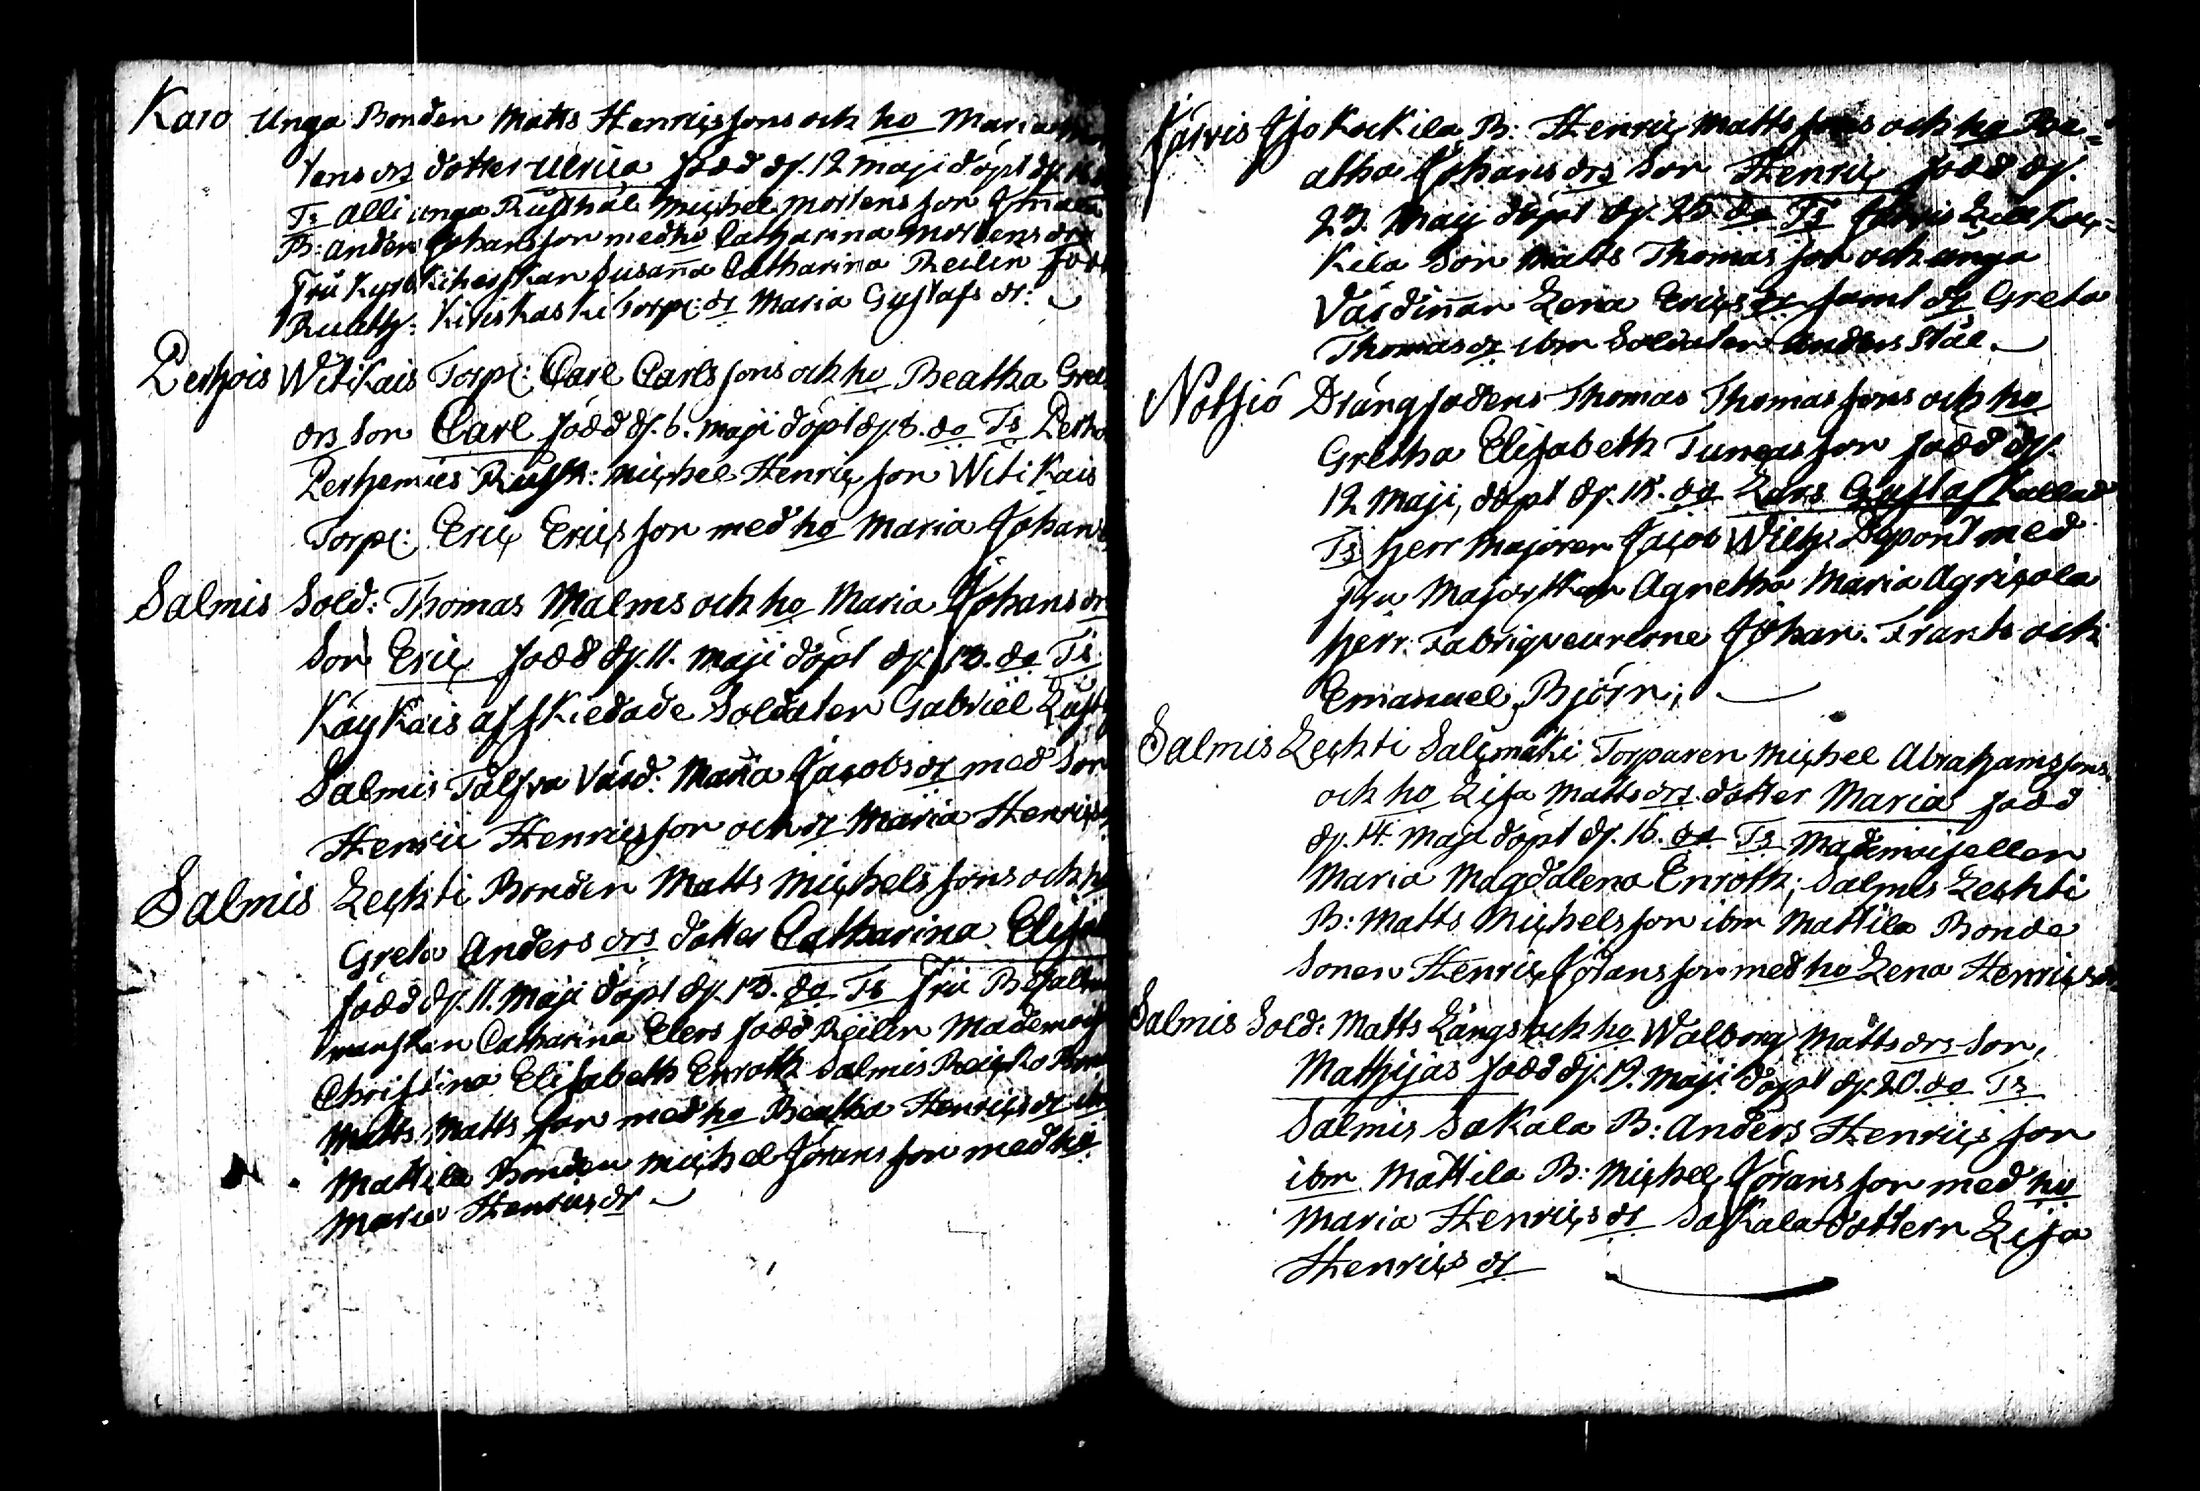 Karo Unga Bonden Matts Henricssons och ho Maria Mor
tens drs dotter Ulrica född d. 12 Maji döpt d.
Ts Alli unga Rusthål. Michel Mortensson
B: Anders Johansson med ho Catharina Mortens dr
Fru Kyrkiherskan Susanna Catharina Reilin föd
Kiviskaski Torp: dr Maria Gustafs dr.
Perhois Witikais Torp: Carl Carlssons och ho Beatha Gre
drs Son Carl född d. 6. Maji döpt d. 8. do Ts Perho
Perhemies Rusth: Michel Henricsson Witikais
Torp: Eric Ericsson med ho Maria Johans
Salmis Sold: Thomas Malms och ho Maria Johans dr
Son Eric född d. 11. Maji döpt d. 13. do Ts
Käykäis afskiedade Soldaten Gabriel
Salmis Tålfva Värd: Maria Jacobs dr med Son
Henric Henricsson och dr Maria Henrics
Salmis Lechti Bonden Matts Michelssons och h
Greta Anders drs dotter Catharina Elisa
född d. 11. Maji döpt d. 13. do Ts Fru Befallni
manskan Catharina Elers född Reilin Mademois
Christina Elisabeth Enroth Salmis Reicko Bon
Matts Mattsson med ho Beatha Henrics dr ibm
Mattila Bonden Michel Göransson med ho
Maria Henrics dr
Järvis Isokäkilä B: Henric Mattssons och ho Be=
atha Johans drs Son Henric född d.
23. Maji döpt d. 25. do Ts Järvis
kilä Son Matts Thomasson och unga
Värdinnan Lena Erics dr samt dr Greta
Thomas dr ibm Soldaten Anders Stål.
Notsjö Drängfodens Thomas Thomassons och ho
Gretha Elisabeth Tunnasson född d.
12 Maji, döpt d. 15. do Lars Gustaf kallad
Ts Herr Majoren Jacob Wilh: Depont med
Fru Majorskan Agnetha Maria Agricola
Herr: Fabriqueurerne Johan Frants och
Emanuel Björn;
Salmis Lechti Salcmäki Torparen Michel Abrahamssons
och ho Lisa Matts drs dotter Maria född
d. 14. Maji döpt d. 16. do Ts Mademoisellen
Maria Magdalena Enroth; Salmis Lechti
B: Matts Michelsson ibm Mattila Bonde
Sonen Henric Göransson med ho Lena Henrics dr
Salmis Sold: Matts Längs och ho Walborg Matts drs Son,
Mathijas född d. 19. Maji döpt d. 20. do Ts
Salmis Sakala B: Anders Henricsson
ibm Mattila B: Michel Göransson med ho
Maria Henrics dr Sakala dottern Lisa
Henrics dr